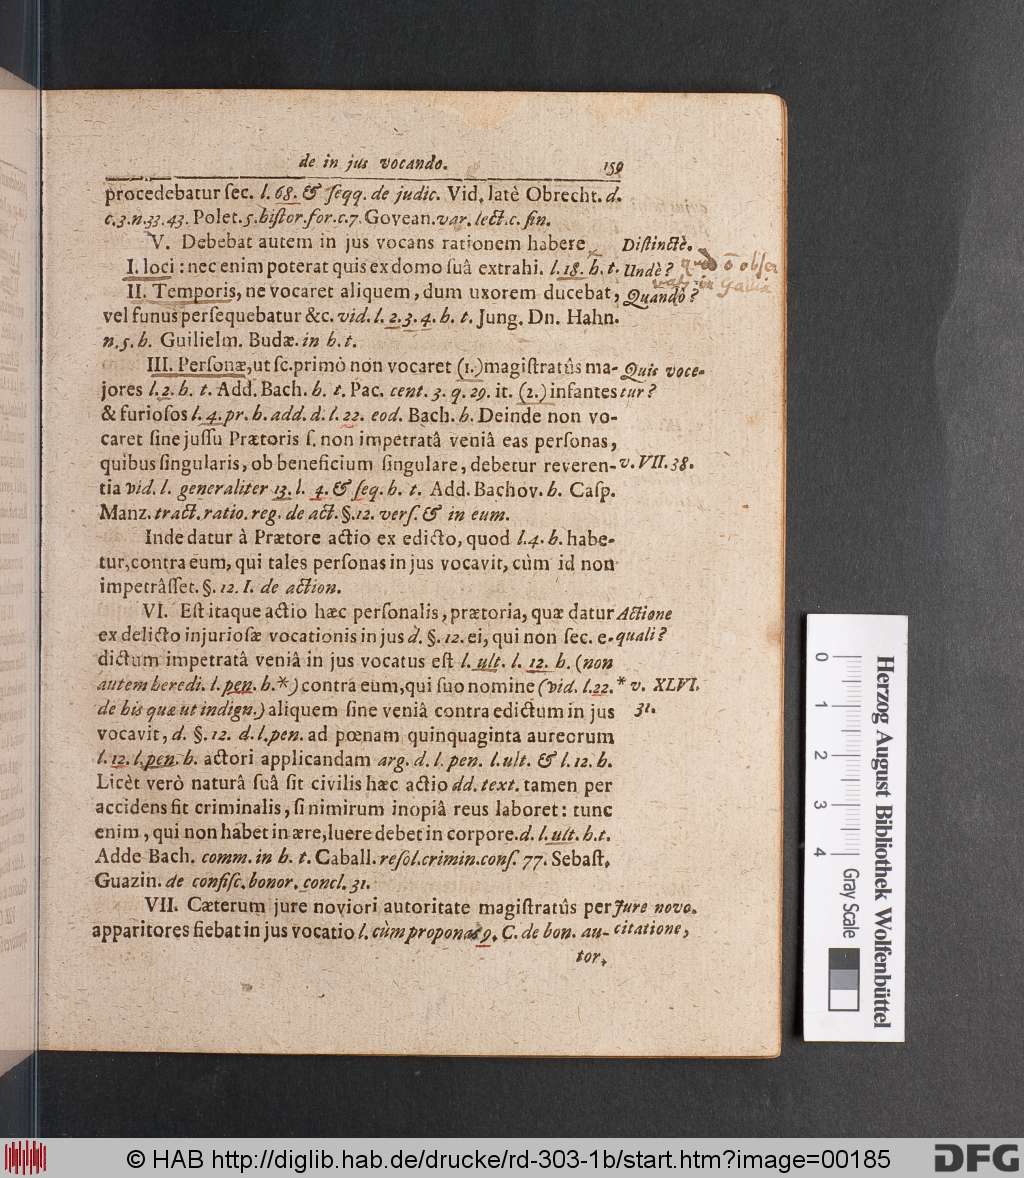 de in jus vocando. 159
procedebatur ſec. l. 68. & ſeqq. de judic. Vid. latè Obrecht. d.
c. 3. n. 33. 43. Polet. 5. hiſtor. for. c. 7. Govean. var. lect. c. fin.
V. Debebat autem in jus vocans rationem habere Diſtinctè.
I. loci : nec enim poterat quis ex domo ſuâ extrahi. l. 18. h. t. Undè?
II. Temporis, ne vocaret aliquem, dum uxorem ducebat, Quandò?
vel funus perſequebatur &c. vid. l. 2. 3. 4. h. t. Jung. Dn. Hahn.
n. 5. h. Guilielm. Budæ. in h. t.
III. Perſonæ, ut ſc. primò non vocaret (1.) magiſtratûs ma- Quis voce-
jores l. 2. h. t. Add. Bach. h. t. Pac. cent. 3. q. 29. it. (2.) infantes tur?
& furioſos l. 4. pr. h. add. d. l. 22. eod. Bach. h. Deinde non vo-
caret ſine juſſu Prætoris ſ. non impetratâ veniâ eas perſonas,
quibus ſingularis, ob beneficium ſingulare, debetur reveren- v. VII. 38.
tia vid. l. generaliter 13. l. 4. & ſeq. h. t. Add. Bachov. h. Caſp.
Manz. tract. ratio. reg. de act. §. 12. verſ. & in eum.
Inde datur à Prætore actio ex edicto, quod l. 4. h. habe-
tur, contra eum, qui tales perſonas in jus vocavit, cùm id non
impetrâſſet. §. 12. I. de action.
VI. Eſt itaque actio hæc perſonalis, prætoria, quæ datur Actione
ex delicto injurioſæ vocationis in jus d. §. 12. ei, qui non ſec. e- quali?
dictum impetratâ veniâ in jus vocatus eſt l. ult. l. 12. h. (non
autem heredi. l. pen. h. *) contra eum, qui ſuo nomine (vid. l. 22. * v. XLVI.
de his quæ ut indign.) aliquem ſine veniâ contra edictum in jus 31.
vocavit, d. §. 12. d. l. pen. ad pœnam quinquaginta aureorum
l. 12. l. pen. h. actori applicandam arg. d. l. pen. l. ult. & l. 12. h.
Licèt verò naturâ ſuâ ſit civilis hæc actio dd. text. tamen per
accidens fit criminalis, ſi nimirum inopiâ reus laboret : tunc
enim, qui non habet in ære, luere debet in corpore. d. l. ult. h. t.
Adde Bach. comm. in h. t. Caball. reſol. crimin. conſ. 77. Sebaſt.
Guazin. de confiſc. bonor. concl. 31.
VII. Cæterum jure noviori autoritate magiſtratûs per Jure novo.
apparitores fiebat in jus vocatio l. cùm proponas 9. C. de bon. au- citatione,
tor.
0 1 2 3 4
Gray Scale
Herzog August Bibliothek Wolfenbüttel
© HAB http://diglib.hab.de/drucke/rd-303-1b/start.htm?image=00185
DFG